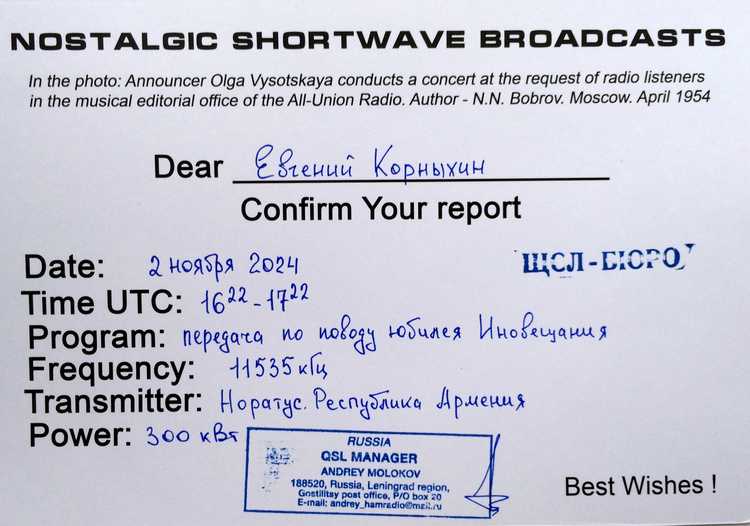 NOSTALGIC SHORTWAVE BROADCASTS
In the photo: Announcer Olga Vysotskaya conducts a concert at the request of radio listeners
in the musical editorial office of the All-Union Radio. Author - N.N. Bobrov. Moscow. April 1954
Dear Евгений Корныхин
Confirm Your report
Date: 2 ноября 2024
ЩСЛ-БЮРО
Time UTC: 16²² - 17²²
Program: передача по поводу юбилея Иновещания
Frequency: 11535 кГц
Transmitter: Норатус. Республика Армения
Power: 300 кВт
RUSSIA
QSL MANAGER
ANDREY MOLOKOV
188520, Russia, Leningrad region,
Gostilitsy post office, P/O box 20
E-mail: andrey_hamradio@mail.ru
Best Wishes !